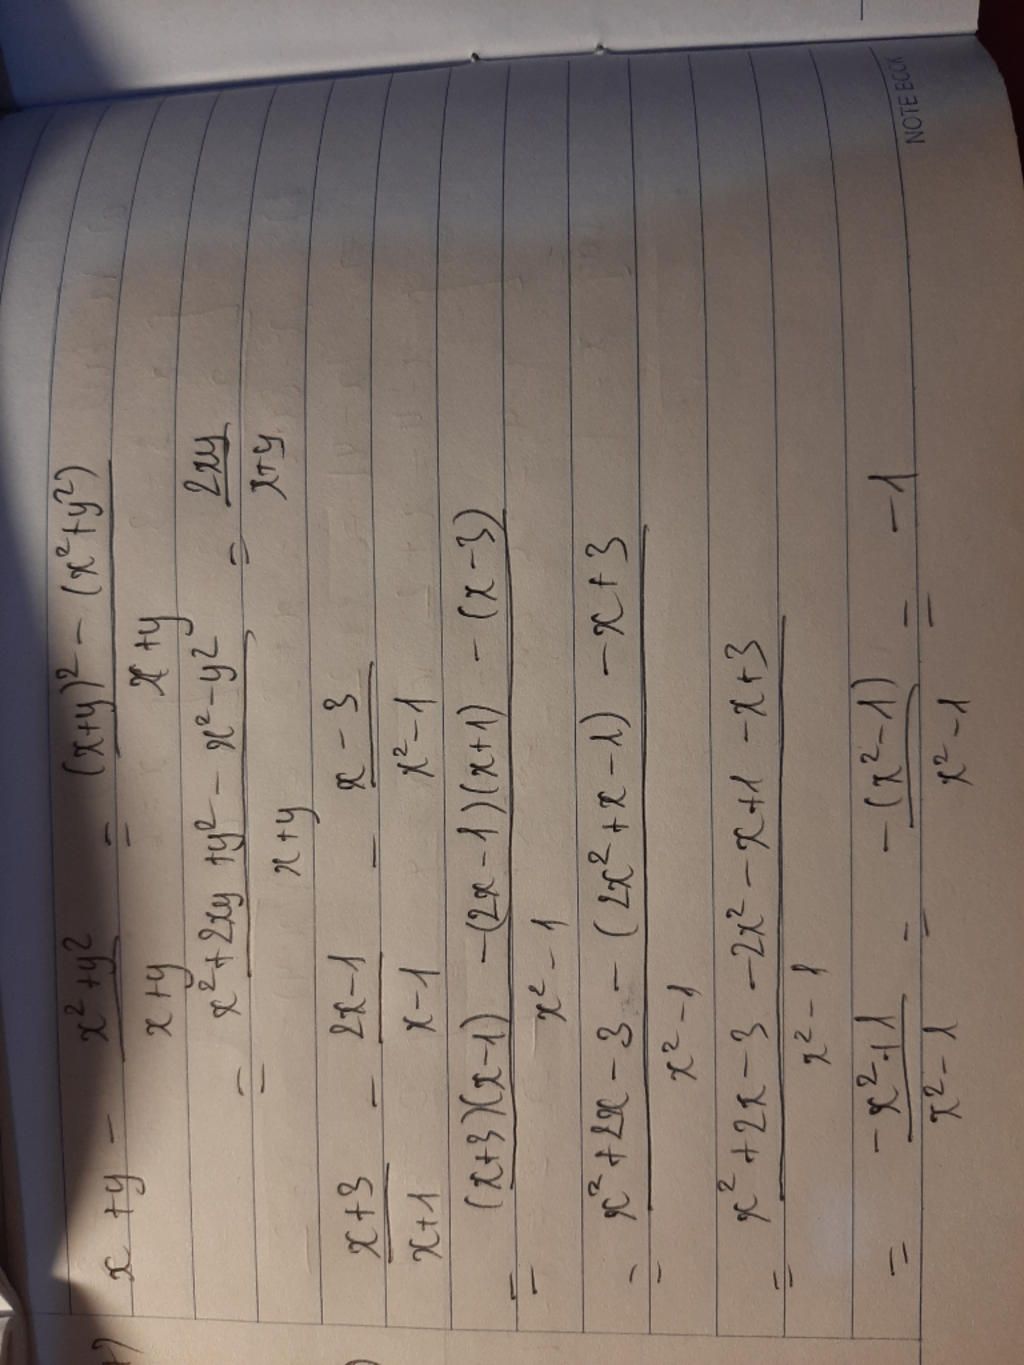 x + y - \frac{x^2+y^2}{x+y} = \frac{(x+y)^2 - (x^2+y^2)}{x+y}
= \frac{x^2+2xy+y^2-x^2-y^2}{x+y} = \frac{2xy}{x+y}
\frac{x+3}{x+1} - \frac{2x-1}{x-1} - \frac{x-3}{x^2-1}
= \frac{(x+3)(x-1) - (2x-1)(x+1) - (x-3)}{x^2-1}
= \frac{x^2+2x-3-(2x^2+x-1)-x+3}{x^2-1}
= \frac{x^2+2x-3-2x^2-x+1-x+3}{x^2-1}
= \frac{-x^2+1}{x^2-1} = \frac{-(x^2-1)}{x^2-1} = -1
NOTEBOOK